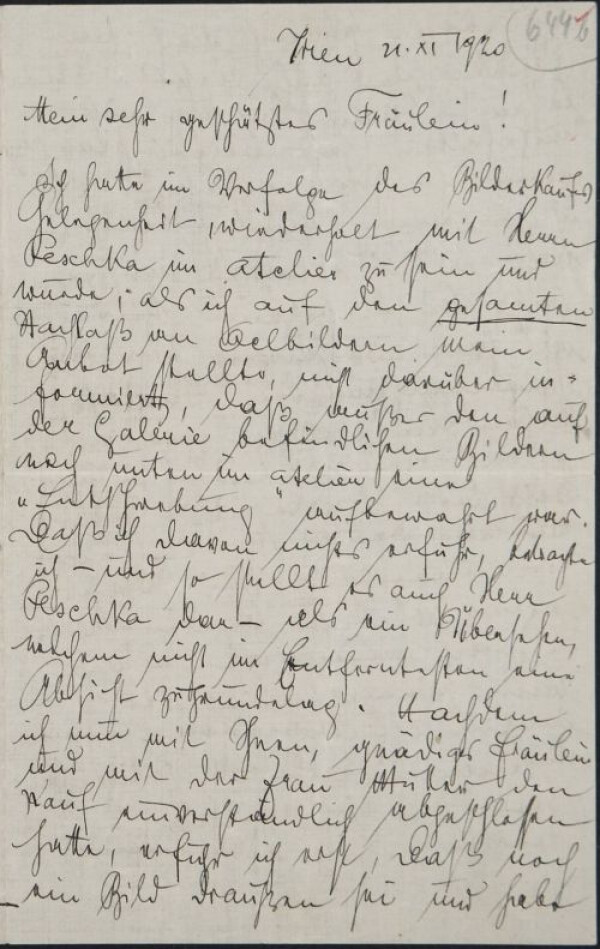 6446
Wien 21. XI 1920
Mein sehr geschätztes Fräulein!
Ich hatte im Verfolge des Bilderkaufes
Gelegenheit, wiederholt mit Herrn
Peschka im Atelier zu sein und
wurde, als ich auf den gesamten
Nachlaß an Oelbildern mein
Anbot stellte, nicht darüber in-
formiert, daß außer den auf
der Galerie befindlichen Bildern
noch unten im Atelier eine
„Entschwebung" aufbewahrt war.
Daß ich davon nichts erfuhr, betrachte
ich – und so stellt es auch Herr
Peschka dar – als ein Übersehen,
welchem nicht im Entferntesten eine
Absicht zugrundelag. Nachdem
ich nun mit Ihnen, gnädiges Fräulein
und mit der Frau Mutter den
Kauf einverständlich abgeschlossen
hatte, erfuhr ich erst, daß noch
ein Bild draußen sei und habe